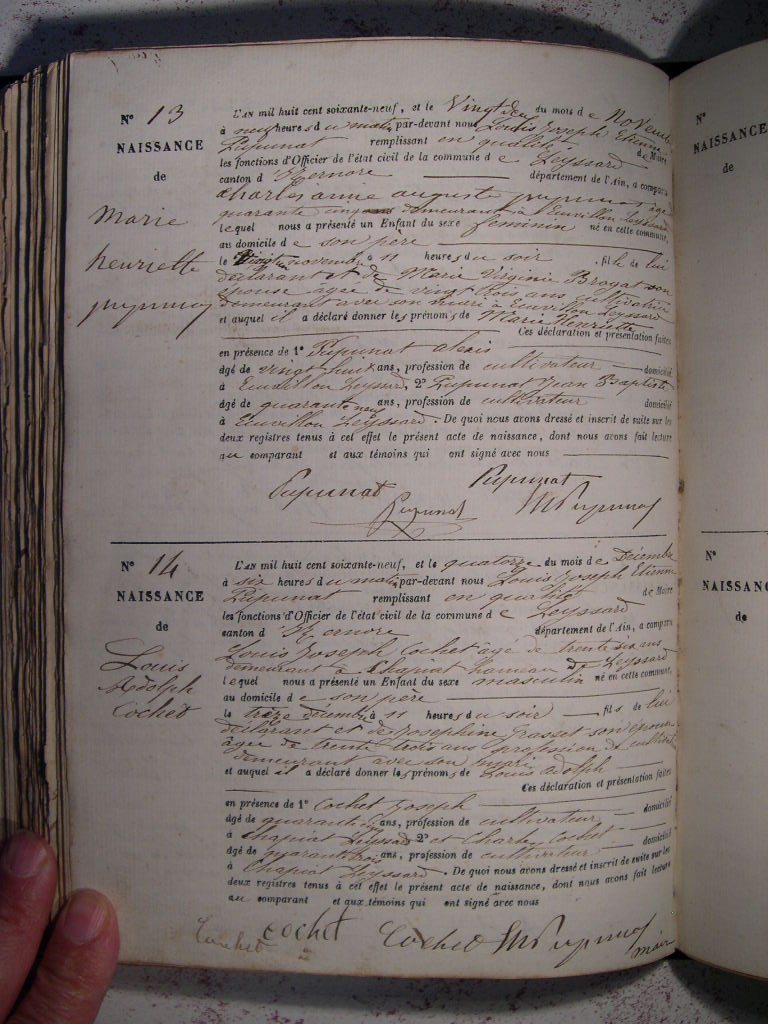 N° 13
NAISSANCE
de
Marie
henriette
L'AN mil huit cent soixante-neuf, et le Vingt deux du mois de Novembre
à neuf heures du matin, par-devant nous Louis Joseph Etienne
Pupunat remplissant en qualité de Maire
les fonctions d'Officier de l'état civil de la commune de Leyssard
canton d'Izernore département de l'Ain, a comparu
Charles auguste âgé
quarante demeurant à Euvillon Leyssard
lequel nous a présenté un Enfant du sexe féminin né en cette commune,
au domicile de son père
le novembre à 11 heures du soir fille de lui
déclarant et de Marie Virginie Brogat son
épouse âgée de vingt trois ans cultivatrice
demeurant avec son mari à Euvillon Leyssard
et auquel il a déclaré donner les prénoms de Marie Henriette
Ces déclaration et présentation faites
en présence de 1° Pupunat alexis
âgé de vingt huit ans, profession de cultivateur domicilié
à Euvillon Leyssard, 2° Pupunat Jean Baptiste
âgé de quarante neuf ans, profession de cultivateur domicilié
à Euvillon Leyssard. De quoi nous avons dressé et inscrit de suite sur les
deux registres tenus à cet effet le présent acte de naissance, dont nous avons fait lecture
au comparant et aux témoins qui ont signé avec nous
Pupunat Pupunat
Pupunat
N° 14
NAISSANCE
de
Louis
Adolph
Cochet
L'AN mil huit cent soixante-neuf, et le quatorze du mois de Décembre
à six heures du matin, par-devant nous Louis Joseph Etienne
Pupunat remplissant en qualité de Maire
les fonctions d'Officier de l'état civil de la commune de Leyssard
canton d'Izernore département de l'Ain, a comparu
Louis Joseph Cochet âgé de trente six ans
demeurant à Chapiat hameau de Leyssard
lequel nous a présenté un Enfant du sexe masculin né en cette commune,
au domicile de son père
le treize décembre à 11 heures du soir fils de lui
déclarant et de Josephine Grasset son épouse
âgée de trente trois ans profession de
demeurant avec son mari
et auquel il a déclaré donner les prénoms de Louis adolph
Ces déclaration et présentation faites
en présence de 1° Cochet Joseph
âgé de quarante ans, profession de cultivateur domicilié
à Chapiat Leyssard 2° et Charles Cochet
âgé de quarante trois ans, profession de cultivateur domicilié
à Chapiat Leyssard. De quoi nous avons dressé et inscrit de suite sur les
deux registres tenus à cet effet le présent acte de naissance, dont nous avons fait lecture
au comparant et aux témoins qui ont signé avec nous
Cochet cochet Cochet
maire
N°
NAISSANCE
de
N°
NAISSANC
de